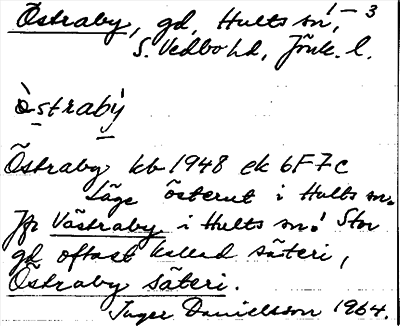 Östraby, gd, Hults sn, 1–3
S. Vedbo hd, Jönk. l.
ö̀straby̍
Östraby kb 1948 ek 6F7c
Läge österut i Hults sn.
Jfr Västraby i Hults sn! Stor
gd oftast kallad säteri,
Östraby säteri.
Inger Danielsson 1964.